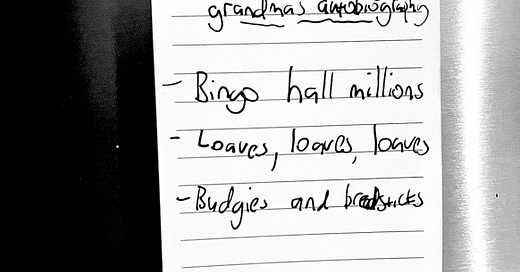 grandmas autobiography
- Bingo hall millions
- Loaves, loaves, loaves
- Budgies and breadsticks